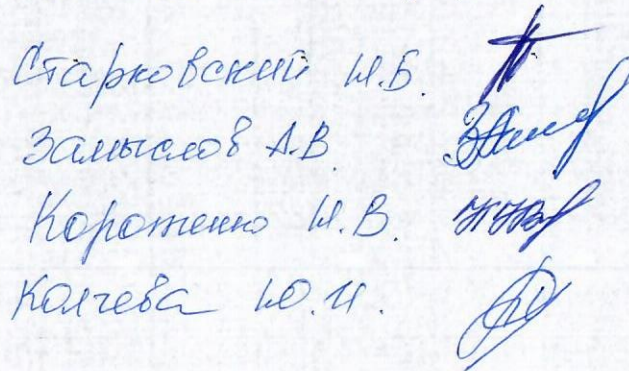 Старковский И.Б.
Замыслов А.В.
Короженко И.В.
Колчева Ю.И.